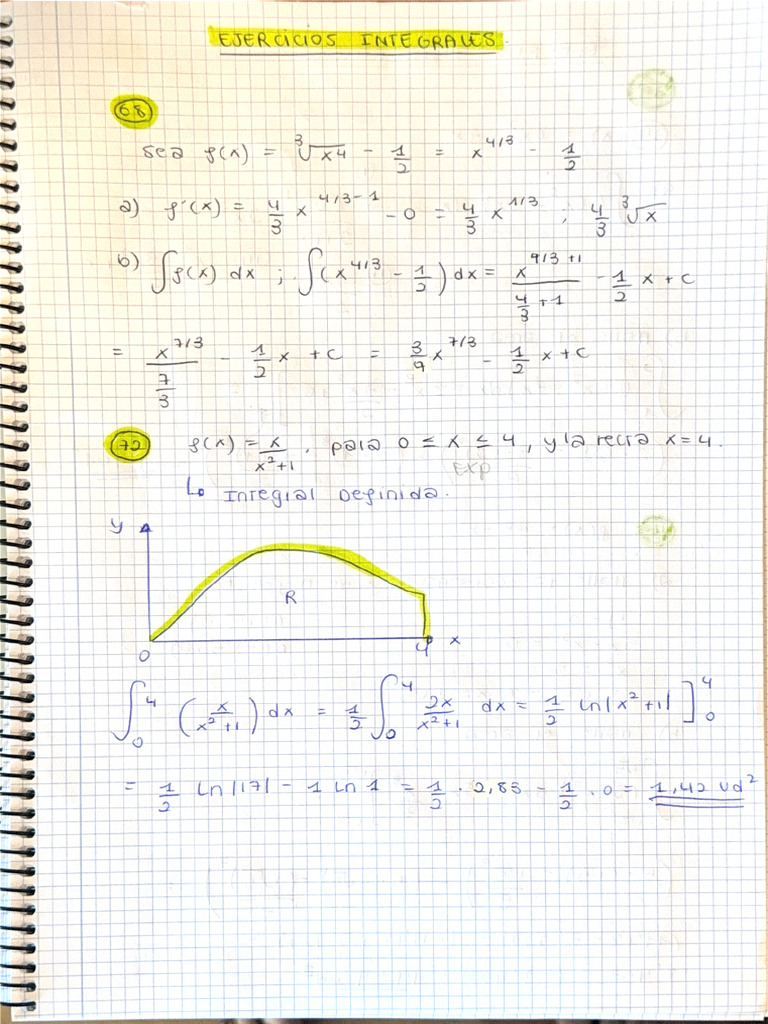 EJERCICIOS INTEGRALES.
68
sea f(x) = ∛x4 - 1/2 = x^4/3 - 1/2
a) f'(x) = 4/3 x^4/3-1 - 0 = 4/3 x^1/3 ; 4/3 ∛x
b) ∫f(x) dx ; ∫(x^4/3 - 1/2) dx = x^4/3+1 / (4/3 + 1) - 1/2 x + c
= x^7/3 / (7/3) - 1/2 x + c = 3/7 x^7/3 - 1/2 x + c
72 f(x) = x/(x²+1), para 0 ≤ x ≤ 4, y la recta x=4.
Exp
↳ Integral Definida.
y
R
0 4 x
∫₀⁴ (x/(x²+1)) dx = 1/2 ∫₀⁴ 2x/(x²+1) dx = 1/2 Ln|x²+1| ]₀⁴
= 1/2 Ln|17| - 1/2 Ln 1 = 1/2 · 2,83 - 1/2 · 0 = 1,42 ud²